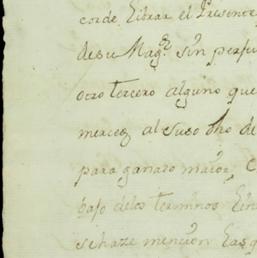 corde Librar el Presente
desu Magd. sin perju
otro tercero alguno que
merced al suso dho de
para ganado maior, C
bajo delos terminos Lin
se haze mencion Las q